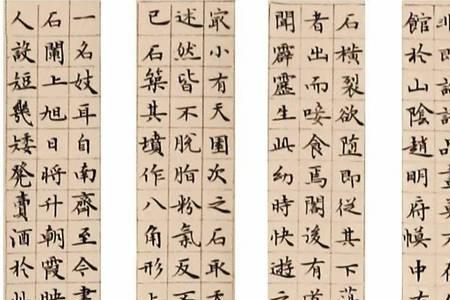 館於山陰趙明府幙中有
石橫裂欲隨即從其下
者出而唼食焉閣後有
開霹靂生此幼時快遊之
㝡小有天園次之石取
述然皆不脫脂粉氣反不
已石築其墳作八角形上
一名妓耳自南齊至今書
石闌上旭日將升朝霞映
人設短幾矮凳賣酒於